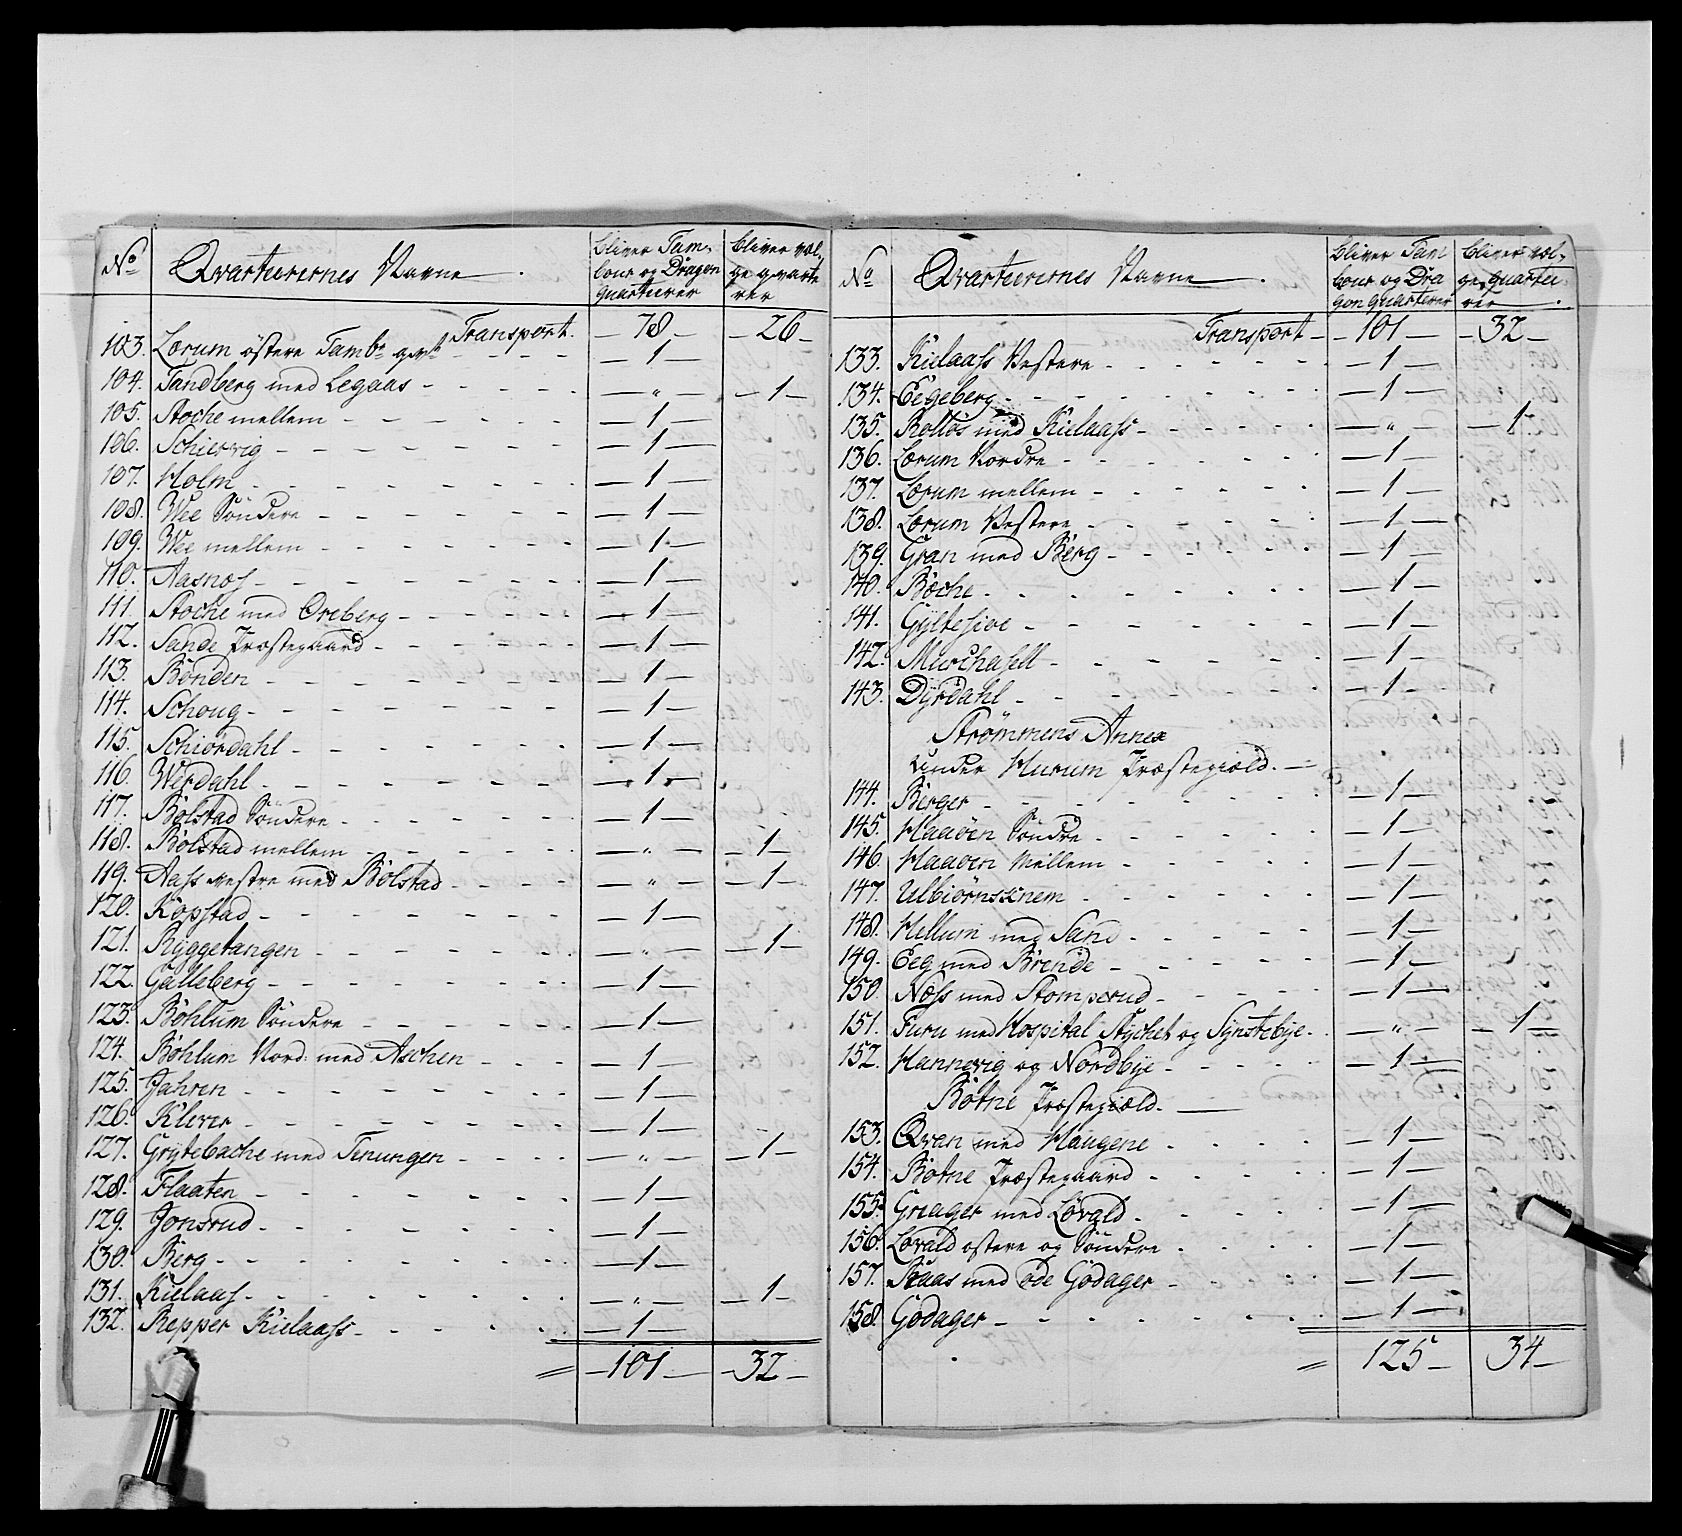 No Qvarteerernes Navne. bliver Tam- bour og Dragon quarteerer bliver øel- ge qvarte rer
Transport. -78- -26-
103. Lørum östere Tambr qvtr - 1 -
104. Sandberg med Legaas - " - - 1 -
105. Stoche mellem - 1 -
106. Schiervig - 1 -
107. Holm - 1 -
108. Wee Söndere - 1 -
109. Wee mellem - 1 -
110. Aasnæs - 1 -
111. Stoche med Oreberg - 1 -
112. Sande Præstegaard - 1 -
113. Bönden - 1 -
114. Schoug - 1 -
115. Schiördahl - 1 -
116. Werdahl - 1 -
117. Bölstad Söndere - 1 -
118. Bölstad mellem - " - - 1 -
119. Aass vestre med Bölstad - " - - 1 -
120. Kopstad - 1 -
121. Ryggetangen - " - - 1 -
122. Galleberg - 1 -
123. Böhlum Söndere - 1 -
124. Böhlum Nord: med Aschen - 1 -
125. Jahren - 1 -
126. Klever - 1 -
127. Grytebache med Tenungen - " - - 1 -
128. Flaaten - 1 -
129. Jonsrud - 1 -
130. Berg - 1 -
131. Kielaas - " - - 1 -
132. Repper Kielaass - 1 -
= -101- -32-
No Qvarteerernes Navne. bliver Tam bour og Dra gon quarterer bliver øel- ge quartee rer
Transport -101- -32-
133. Kielaass Vestere - 1 -
134. Eegeberg - 1 -
135. Roltös med Kielaass - " - - 1
136. Lörum Nordre - 1 -
137. Lörum mellem - 1 -
138. Lörum Vestere - 1 -
139. Gran med Berg - 1 -
140. Bæche - 1 -
141. Gyltesioe - 1 -
142. Murchasell - 1 -
143. Dyrdahl - 1 -
Strömmens Annex
under Hurum Præstegiæld.
144. Berger - 1 -
145. Haaöen Söndre - 1 -
146. Haaöen Mellem - 1 -
147. Ulbiörnssknem - 1 -
148. Hellum med Sand - 1 -
149. Eeg med Brende - 1 -
150. Næss med Stomperud - 1 -
151. Furu med Hospital Stychet og Synstebye - " - - 1 -
152. Hannevig og Nordbye - 1 -
Botne Præstegiæld.
153. Qvan med Haugene - 1 -
154. Botne Præstegaard - 1 -
155. Greager med Lövald - 1 -
156. Lövald östere og Söndere - 1 -
157. Raas med öde Godager - 1 -
158. Godager - 1 -
= 125- 34-